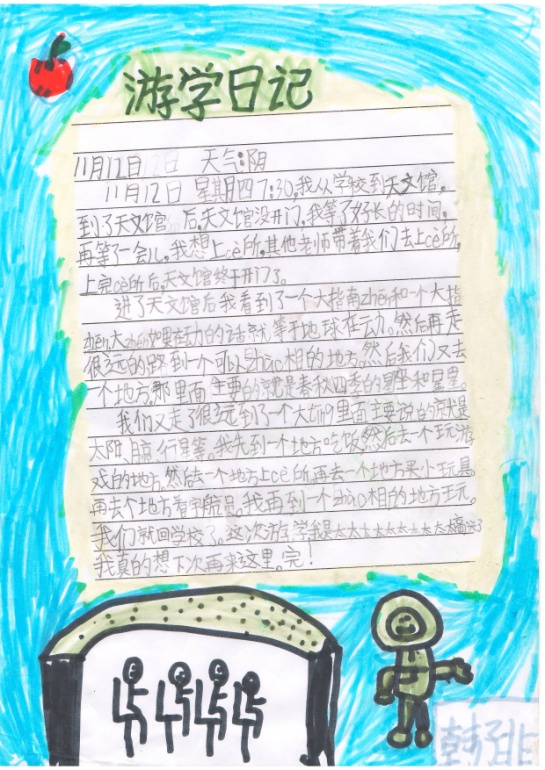 游学日记
11月12日 天气:阴
11月12日 星期四7:30,我从学校到天文馆。
到了天文馆后,天文馆没开门,我等了好长的时间,
再等了一会儿,我想上cè所,其他老师带着我们去上cè所,
上完cè所后,天文馆终于开门了。
进了天文馆后我看到了一个大指南zhēn和一个大指
zhēn大zhēn如果在动的话就等于地球在动。然后再走
很远的路到一个可以zhào相的地方,然后我们又去
一个地方,那里面主要的就是春秋四季的星座和星星。
我们又走了很远到了一个大tīng里面主要说的就是
太阳、月亮、行星等。我先到一个地方吃饭,然后去一个玩游
戏的地方,然后去一个地方上cè所,再去一个地方买小玩具
再去个地方看宇航员。我再到一个zhào相的地方玩。
我们就回学校了。这次游学我是太太太太太太太太高兴了
我真的想下次再来这里。完!